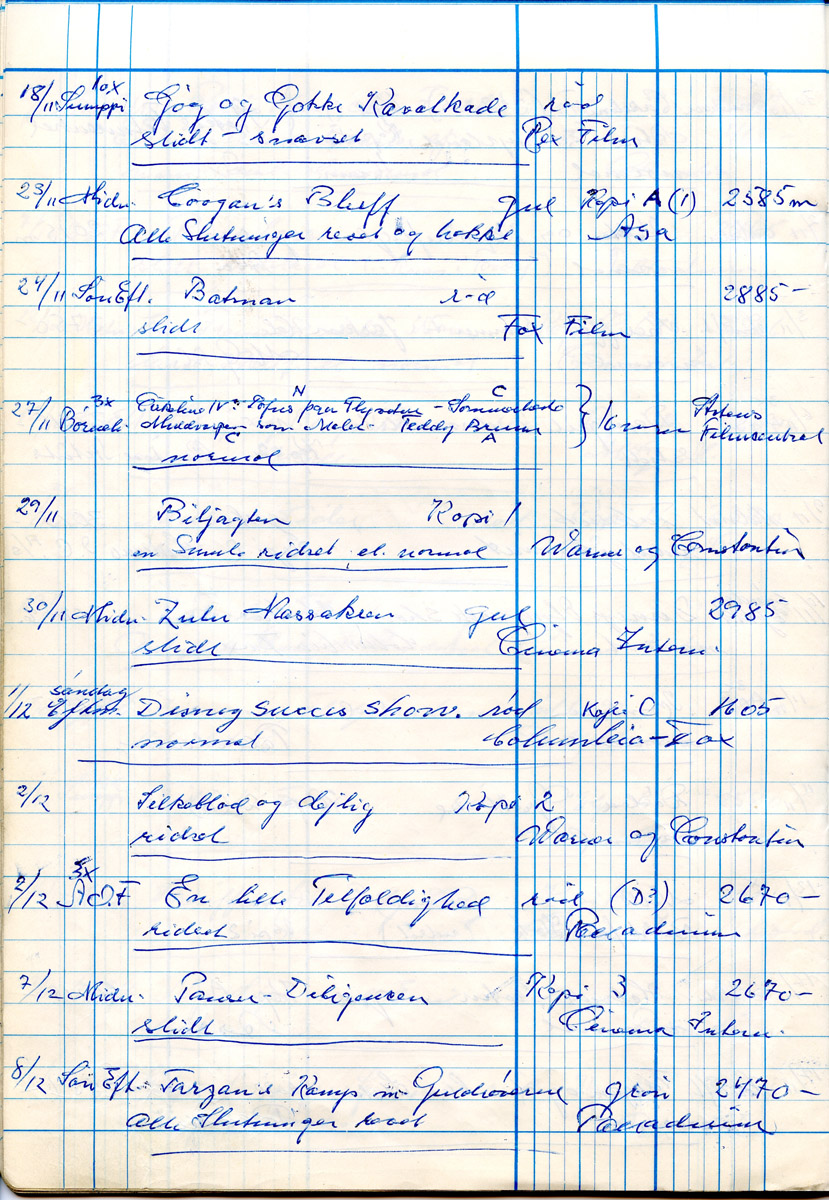 18/11 Sumppi 10x Gøg og Gokke Kavalkade rød
slidt - snavset Rex Film
23/11 Midn. Coogan's Bluff gul Kopi A (1) 2585m
Alle Slutninger revet og hakket ASA
24/11 Søn Eft. Batman rød 2885-
slidt Fox Film
27/11 3x Børnebi. N C
Sommerhede
som Maler - Teddy Brumm } 16 mm Statens Filmcentral
C A
normal
29/11 Biljagten Kopi 1
en Smule ridset el. normal Warner og Constantin
30/11 Midn. Zulu Massakren gul 2985
slidt Cinema Intern.
1/12 søndag Efterm. Disney Succes Show. rød Kopi C 1605
normal Columbia-Fox
2/12 Silkeblød og dejlig Kopi 2
ridset Warner og Constantin
2/12 3x A.O.F En lille Tilfældighed rød (D?) 2670-
ridset Palladium
7/12 Midn. Panser-Diligencen Kopi 3 2670-
slidt Cinema Intern.
8/12 Søn Eft. Tarzan's Kamp m Guldrøverne grøn 2470-
alle Slutninger revet Palladium